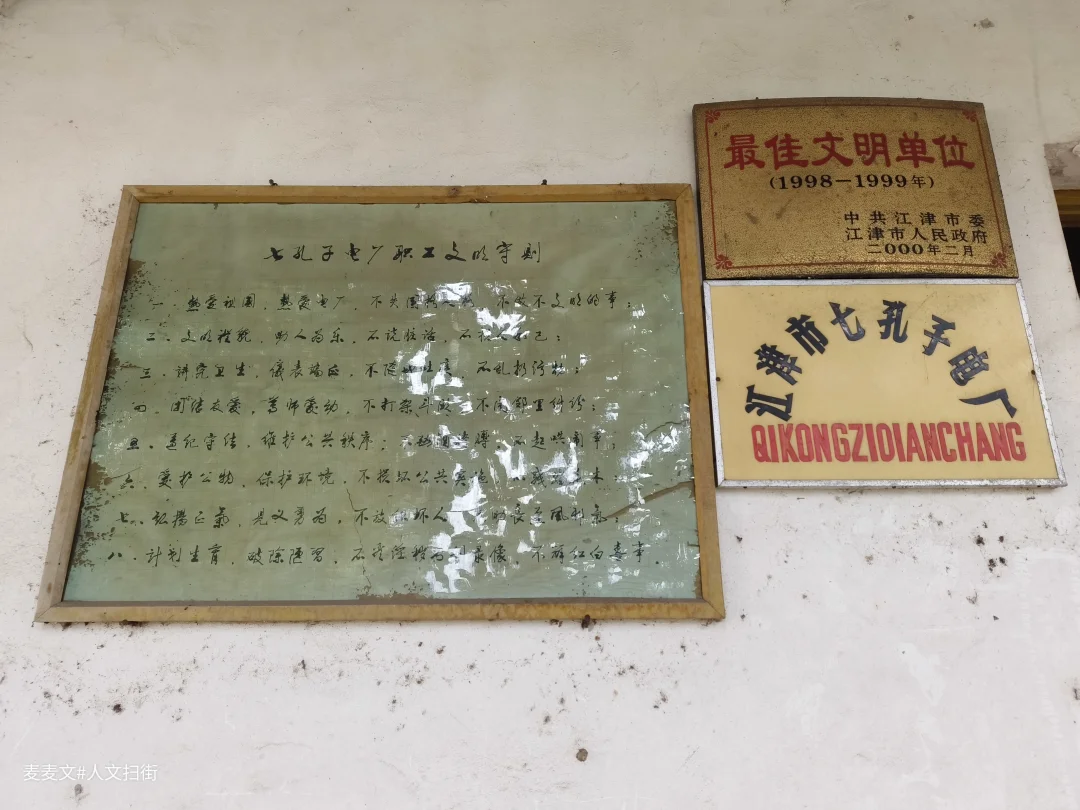 七孔子电厂职工文明守则
一．热爱祖国，热爱电厂，不失国格人格，不做不文明的事；
二．文明礼貌，助人为乐，不说脏话，不
三．讲究卫生，仪表端正，不随地吐痰，不乱扔污物；
四．团结友爱，尊师爱幼，不打架斗殴，不闹邻里纠纷；
五．遵纪守法，维护公共秩序；不起哄闹事；
六．爱护公物，保护环境，不损坏公共
七．弘扬正气，见义勇为，不坏人
八．计划生育，破除陋习，不看淫秽录像，不办红白喜事．
最佳文明单位
(1998－1999年)
中共江津市委
江津市人民政府
二000年二月
江津市七孔子电厂
QIKONGZIDIANCHANG
麦麦文#人文扫街